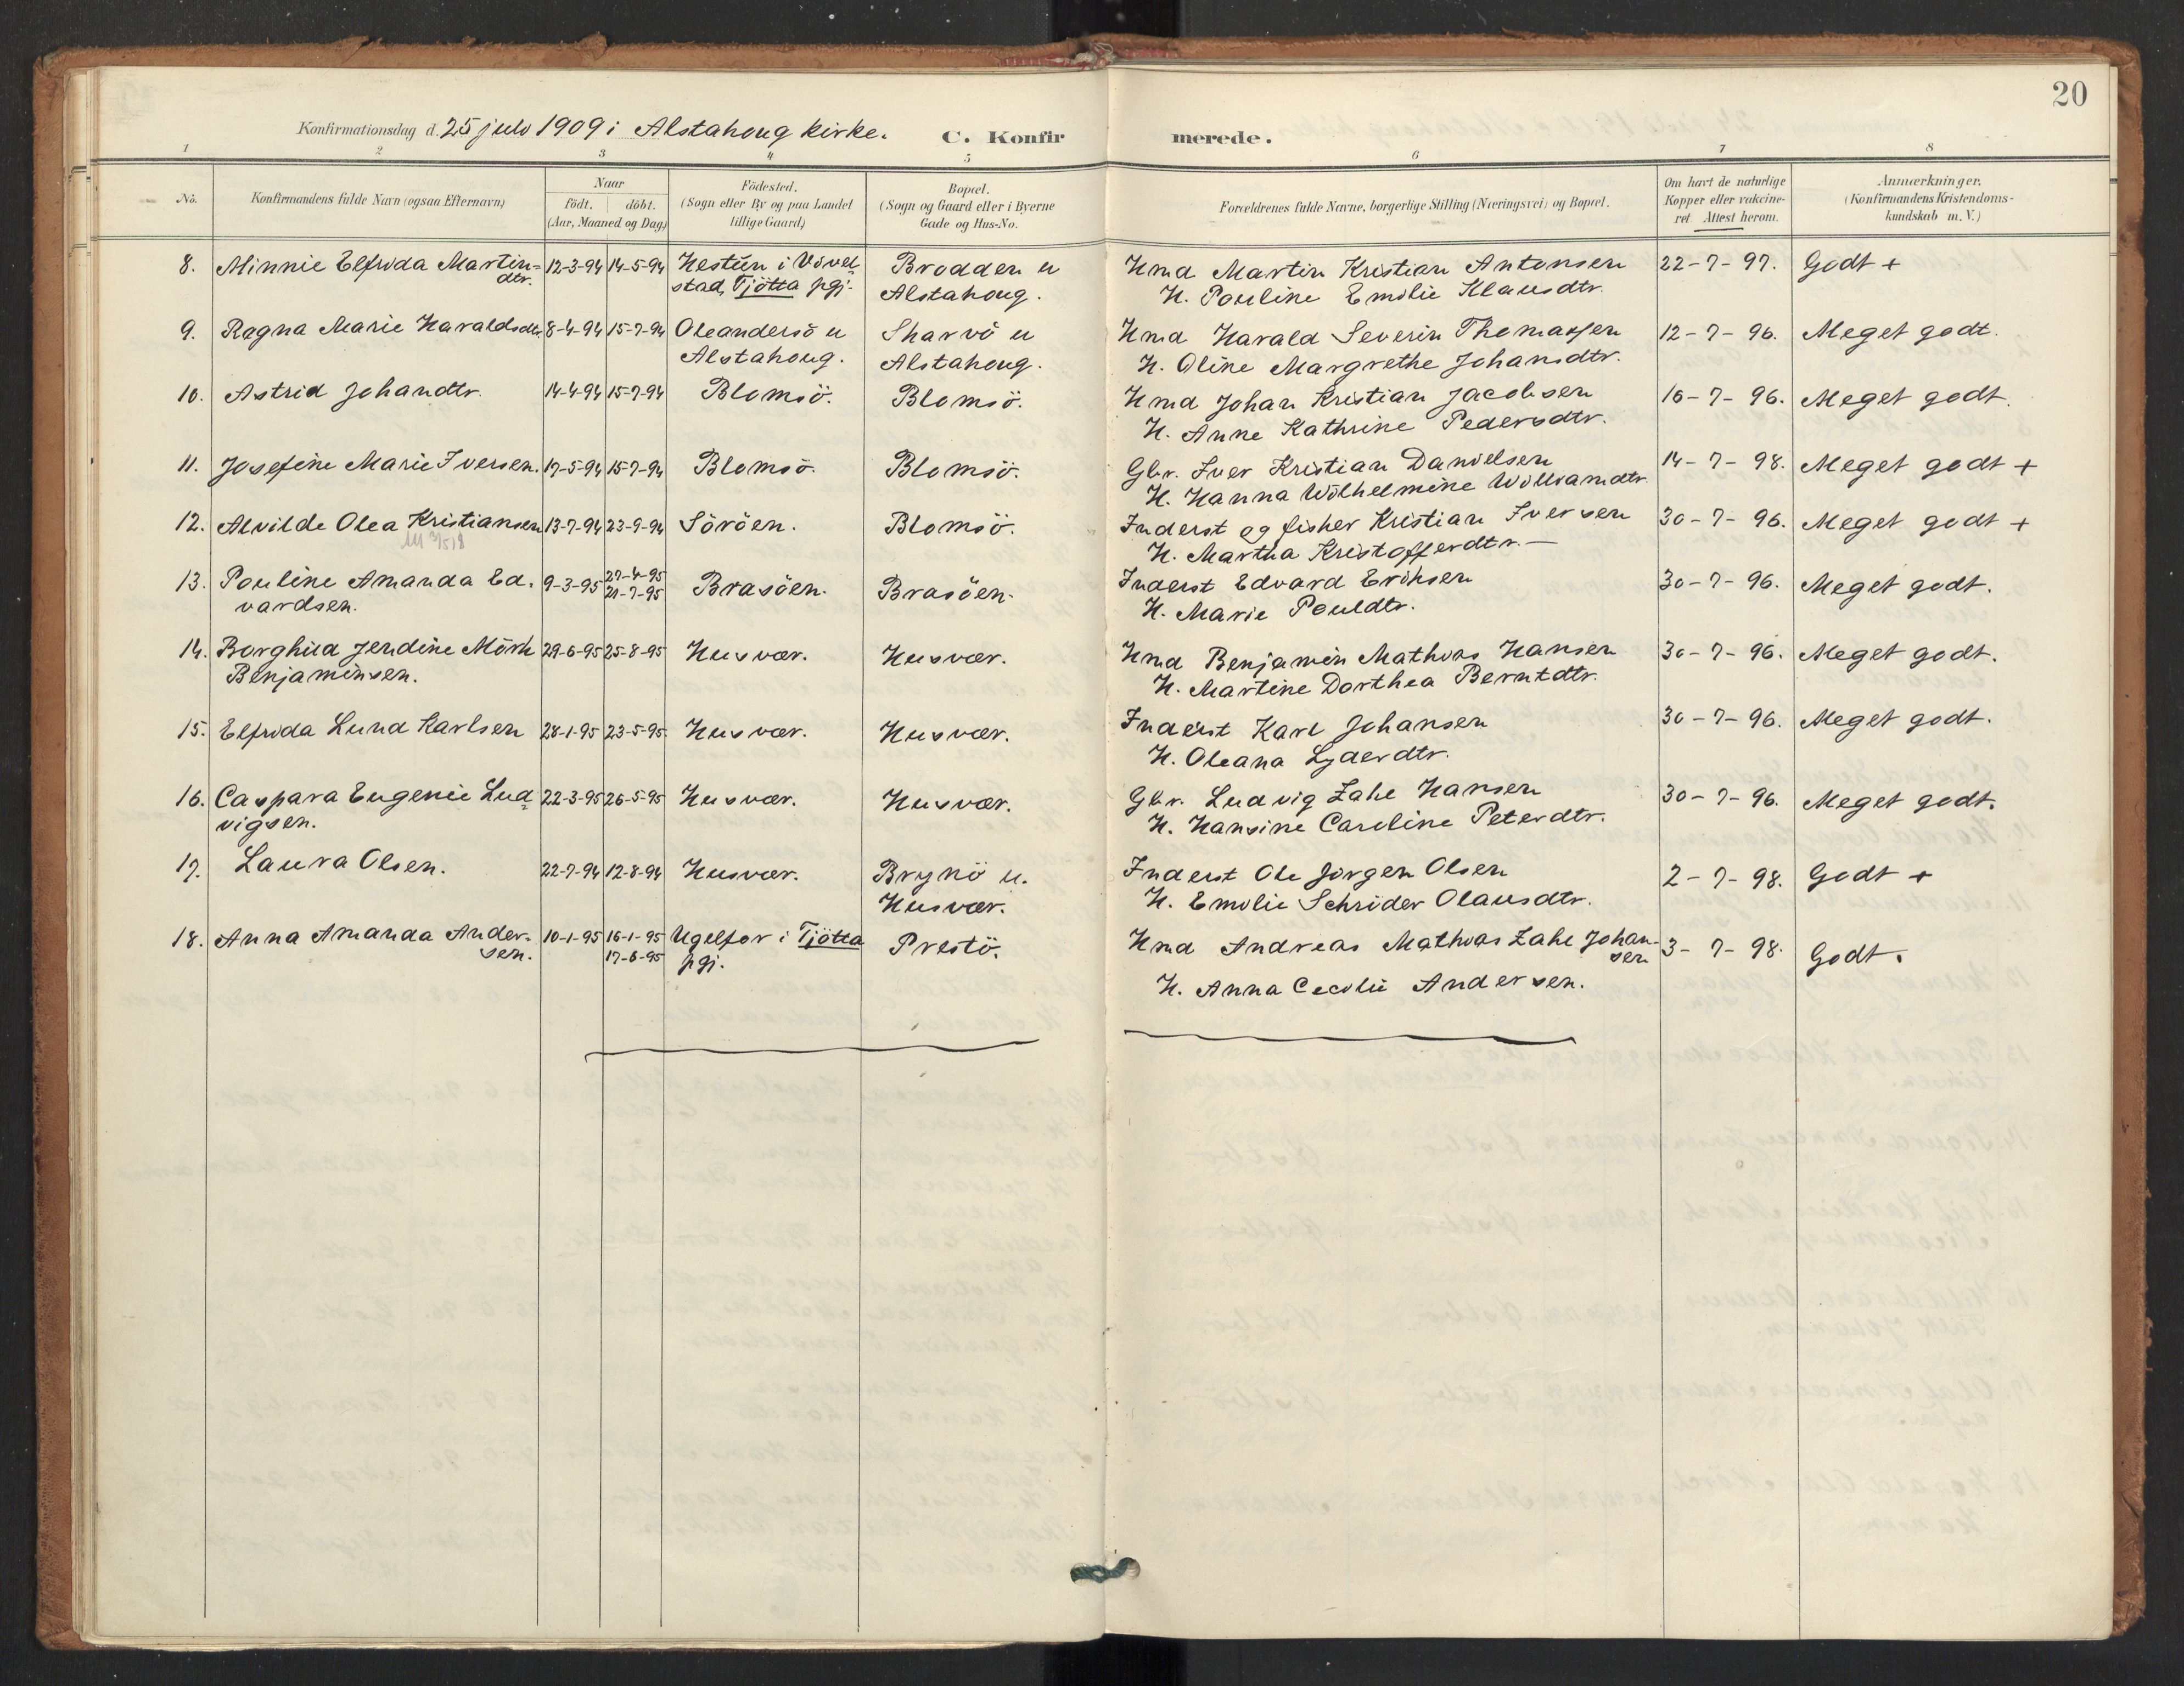 20
Konfirmationsdag d. 25 juli 1909 i Alstahoug kirke. C. Konfirmerede.
1 2 3 4 5 6 7 8
No. Konfirmandens fulde Navn (ogsaa Efternavn) Naar født. døbt. (Aar, Maaned og Dag) Födested. (Sogn eller By og paa Landet tillige Gaard) Bopæl. (Sogn og Gaard eller i Byerne Gade og Hus-No. Forældrenes fulde Navne, borgerlige Stilling (Næringsvei) og Bopæl. Om havt de naturlige Kopper eller vakcineret. Attest herom. Anmærkninger. (Konfirmandens Kristendomskundskab m. V.)
8. Minnie Elfrida Martin= 12-3-94 14-5-94 Hestün i Vivel= Brodden u Kmd Martin Kristian Antonsen 22-7-97. Godt +
dtr. stad, Tjötta pgj. Alstahoug. H. Pouline Emilie Klausdtr.
9. Ragna Marie Haraldsdtr. 8-4-94 15-7-94 Oleandersö u Skarvö u Kmd Harald Severin Thomassen 12-7-96. Meget godt.
Alstahoug. Alstahoug. H. Oline Margrethe Johansdtr.
10. Astrid Johandtr. 14-4-94 15-7-94 Blomsö. Blomsö. Kmd Johan Kristian Jacobsen 16-7-96. Meget godt.
H. Anne Kathrine Pedersdtr.
11. Josefine Marie Iversen. 17-5-94 15-7-94 Blomsö. Blomsö. Gbr. Iver Kristian Danielsen 14-7-98. Meget godt +
H. Hanna Wilhelmine Williamdtr.
12. Alvilde Olea Kristiansen 13-7-94 23-9-94 Söröen. Blomsö. Inderst og fisker Kristian Iversen 30-7-96. Meget godt +
H. Martha Kristofferdtr. —
13. Pouline Amanda Ed. 9-3-95 27-4-95 Brasöen. Brasöen. Inderst Edvard Eriksen 30-7-96. Meget godt.
vardsen. 21-7-95 H. Marie Pouldtr.
14. Borghild Jendine Mörk 29-6-95 25-8-95 Husvær. Husvær. Kmd Benjamin Mathias Hansen 30-7-96. Meget godt.
Benjaminsen. H. Martine Dorthea Berntdtr.
15. Elfrida Lund Karlsen 28-1-95 23-5-95. Husvær. Husvær. Inderst Karl Johansen 30-7-96. Meget godt.
H. Oleana Lyderdtr.
16. Caspara Eugenie Lud= 22-3-95 26-5-95 Husvær. Husvær. Gbr. Ludvig Zahl Hansen 30-7-96. Meget godt.
vigsen. H. Hansine Caroline Peterdtr.
17. Laura Olsen. 22-7-94 12-8-94 Husvær. Brynö u. Inderst Ole Jörgen Olsen 2-7-98. Godt +
Husvær. H. Emilie Schröder Olausdtr.
18. Anna Amanda Ander- 10-1-95 16-1-95 Ugelfor i Tjötta Prestö. Kmd Andreas Mathias Zahl Johan- 3-7-98. Godt.
sen. 17-6-95 pgj. sen
H. Anna Cecilie Andersen.